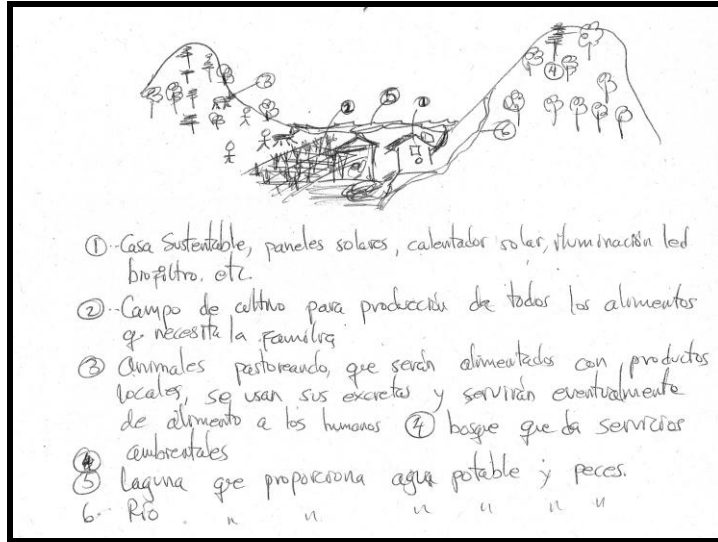 ③
②
⑤
①
④
⑥
① Casa Sustentable, paneles solares, calentador solar, iluminación led
biofiltro. etc.
② Campo de cultivo para producción de todos los alimentos
q necesita la Familia
③ Animales pastoreando, que serán alimentados con productos
locales, se usan sus excretas y servirán eventualmente
de alimento a los humanos ④ bosque que da servicios
ambientales
⑤ Laguna que proporciona agua potable y peces.
6. Río. " " " " " "